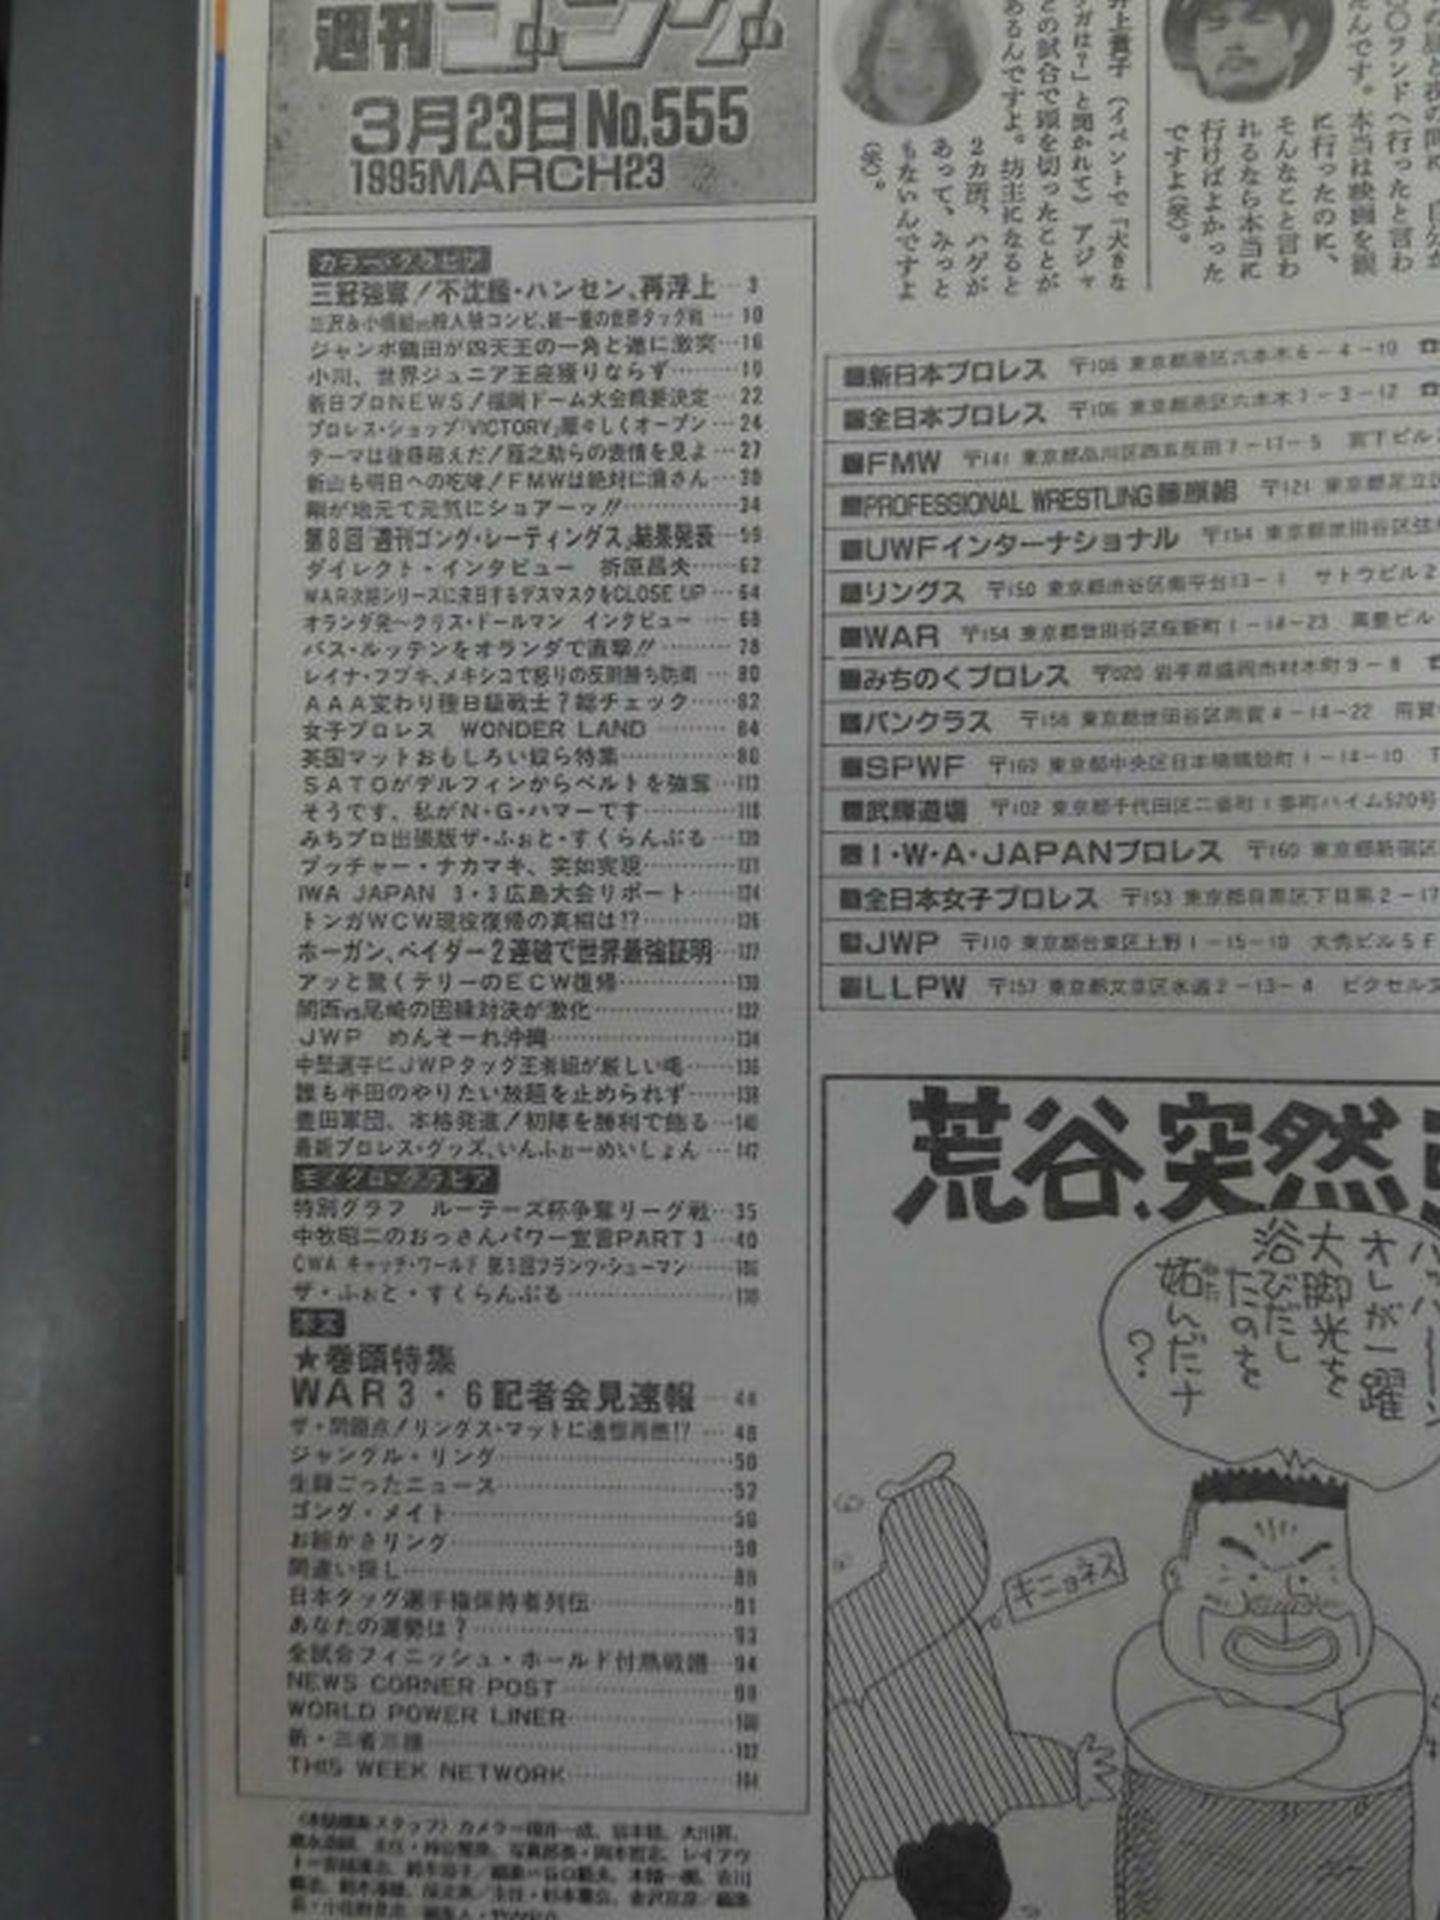 週刊ゴング
3月23日No.555
1995MARCH23
カラー・グラビア
三冠強奪！不沈艦・ハンセン、再浮上… 3
三沢&小橋組vs殺人魚コンビ、統一の世界タッグ戦… 10
ジャンボ鶴田が四天王の一角と遂に激突… 16
小川、世界ジュニア王座獲りならず… 19
新日プロNEWS！福岡ドーム大会概要決定… 22
プロレス・ショップ『VICTORY』華々しくオープン… 24
テーマは後藤超えだ！雁之助らの表情を見よ… 27
新山も明日への咆哮！FMWは絶対に潰さん… 30
剛が地元で元気にショアーッ!!… 34
第8回『週刊ゴング・レーティングス』結果発表… 59
ダイレクト・インタビュー 折原昌夫… 62
WAR次期シリーズに来日するデスマスクをCLOSE UP… 64
オランダ発〜クリス・ドールマン インタビュー… 68
バス・ルッテンをオランダで直撃!!… 78
レイナ・フブキ、メキシコで怒りの反則勝ち防衛… 80
AAA変わり種B級戦士？総チェック… 82
女子プロレス WONDER LAND… 84
英国マットおもしろい奴ら特集… 86
SATOがデルフィンからベルトを強奪… 113
そうです、私がN・G・ハマーです… 118
みちプロ出張版ザ・ふぉと・すくらんぶる… 120
ブッチャー・ナカマキ、突如実現… 121
IWA JAPAN 3・3広島大会リポート… 124
トンガWCW現役復帰の真相は!?… 126
ホーガン、ベイダー2連破で世界最強証明… 127
アッと驚くテリーのECW復帰… 130
関西vs尾崎の因縁対決が激化… 132
JWP めんそーれ沖縄… 134
中堅選手にJWPタッグ王者組が厳しい喝… 136
誰も半田のやりたい放題を止められず… 138
豊田軍団、本格発進！初陣を勝利で飾る… 140
最新プロレス・グッズ、いんふぉーめいしょん… 142
モノクロ・グラビア
特別グラフ ルーテーズ杯争奪リーグ戦… 35
中牧昭二のおっさんパワー宣言PART 3… 40
CWA キャッチ・ワールド 第3回フランツ・シューマン… 106
ザ・ふぉと・すくらんぶる… 110
本文
★巻頭特集
WAR3・6記者会見速報… 44
ザ・問題点！リングス・マットに遺恨再燃!?… 48
ジャングル・リング… 50
生録ごったニュース… 52
ゴング・メイト… 56
お絵かきリング… 58
間違い探し… 89
日本タッグ選手権保持者列伝… 91
あなたの運勢は？… 93
全試合フィニッシュ・ホールド付熱戦譜… 94
NEWS CORNER POST… 98
WORLD POWER LINER… 100
新・三者三様… 102
THIS WEEK NETWORK… 104
井上貴子（イベントで「大きな
ケガは？」と聞かれて）アジャ
との試合で頭を切ったことが
あるんですよ。坊主になると
2カ所、ハゲが
あって、みっと
もないんですよ
（笑）。
ランドへ行ったと言わ
んです。本当は映画を観
に行ったのに、
そんなこと言わ
れるなら本当に
行けばよかった
ですよ（笑）。
■新日本プロレス 〒106 東京都港区六本木6－4－10
■全日本プロレス 〒106 東京都港区六本木7－3－12
■FMW 〒141 東京都品川区西五反田7－17－5 宮下ビル
■PROFESSIONAL WRESTLING藤原組 〒121 東京都足立区
■UWFインターナショナル 〒154 東京都世田谷区弦
■リングス 〒150 東京都渋谷区南平台13－1 サトウビル2
■WAR 〒154 東京都世田谷区桜新町1－14－23
■みちのくプロレス 〒020 岩手県盛岡市材木町9－8
■パンクラス 〒158 東京都世田谷区用賀4－14－22 用賀
■SPWF 〒103 東京都中央区日本橋蛎殻町1－14－10
■武輝道場 〒102 東京都千代田区二番町1番町ハイム520号
■I・W・A・JAPANプロレス 〒160 東京都新宿区
■全日本女子プロレス 〒153 東京都目黒区下目黒2－17
■JWP 〒110 東京都台東区上野1－15－10 大秀ビル5F
■LLPW 〒157 東京都文京区水道2－13－4 ピクセル
荒谷、突然
ハッハハーン
オレが一躍
大脚光を
浴びだし
たのを
妬んだナ
？
キニョネス